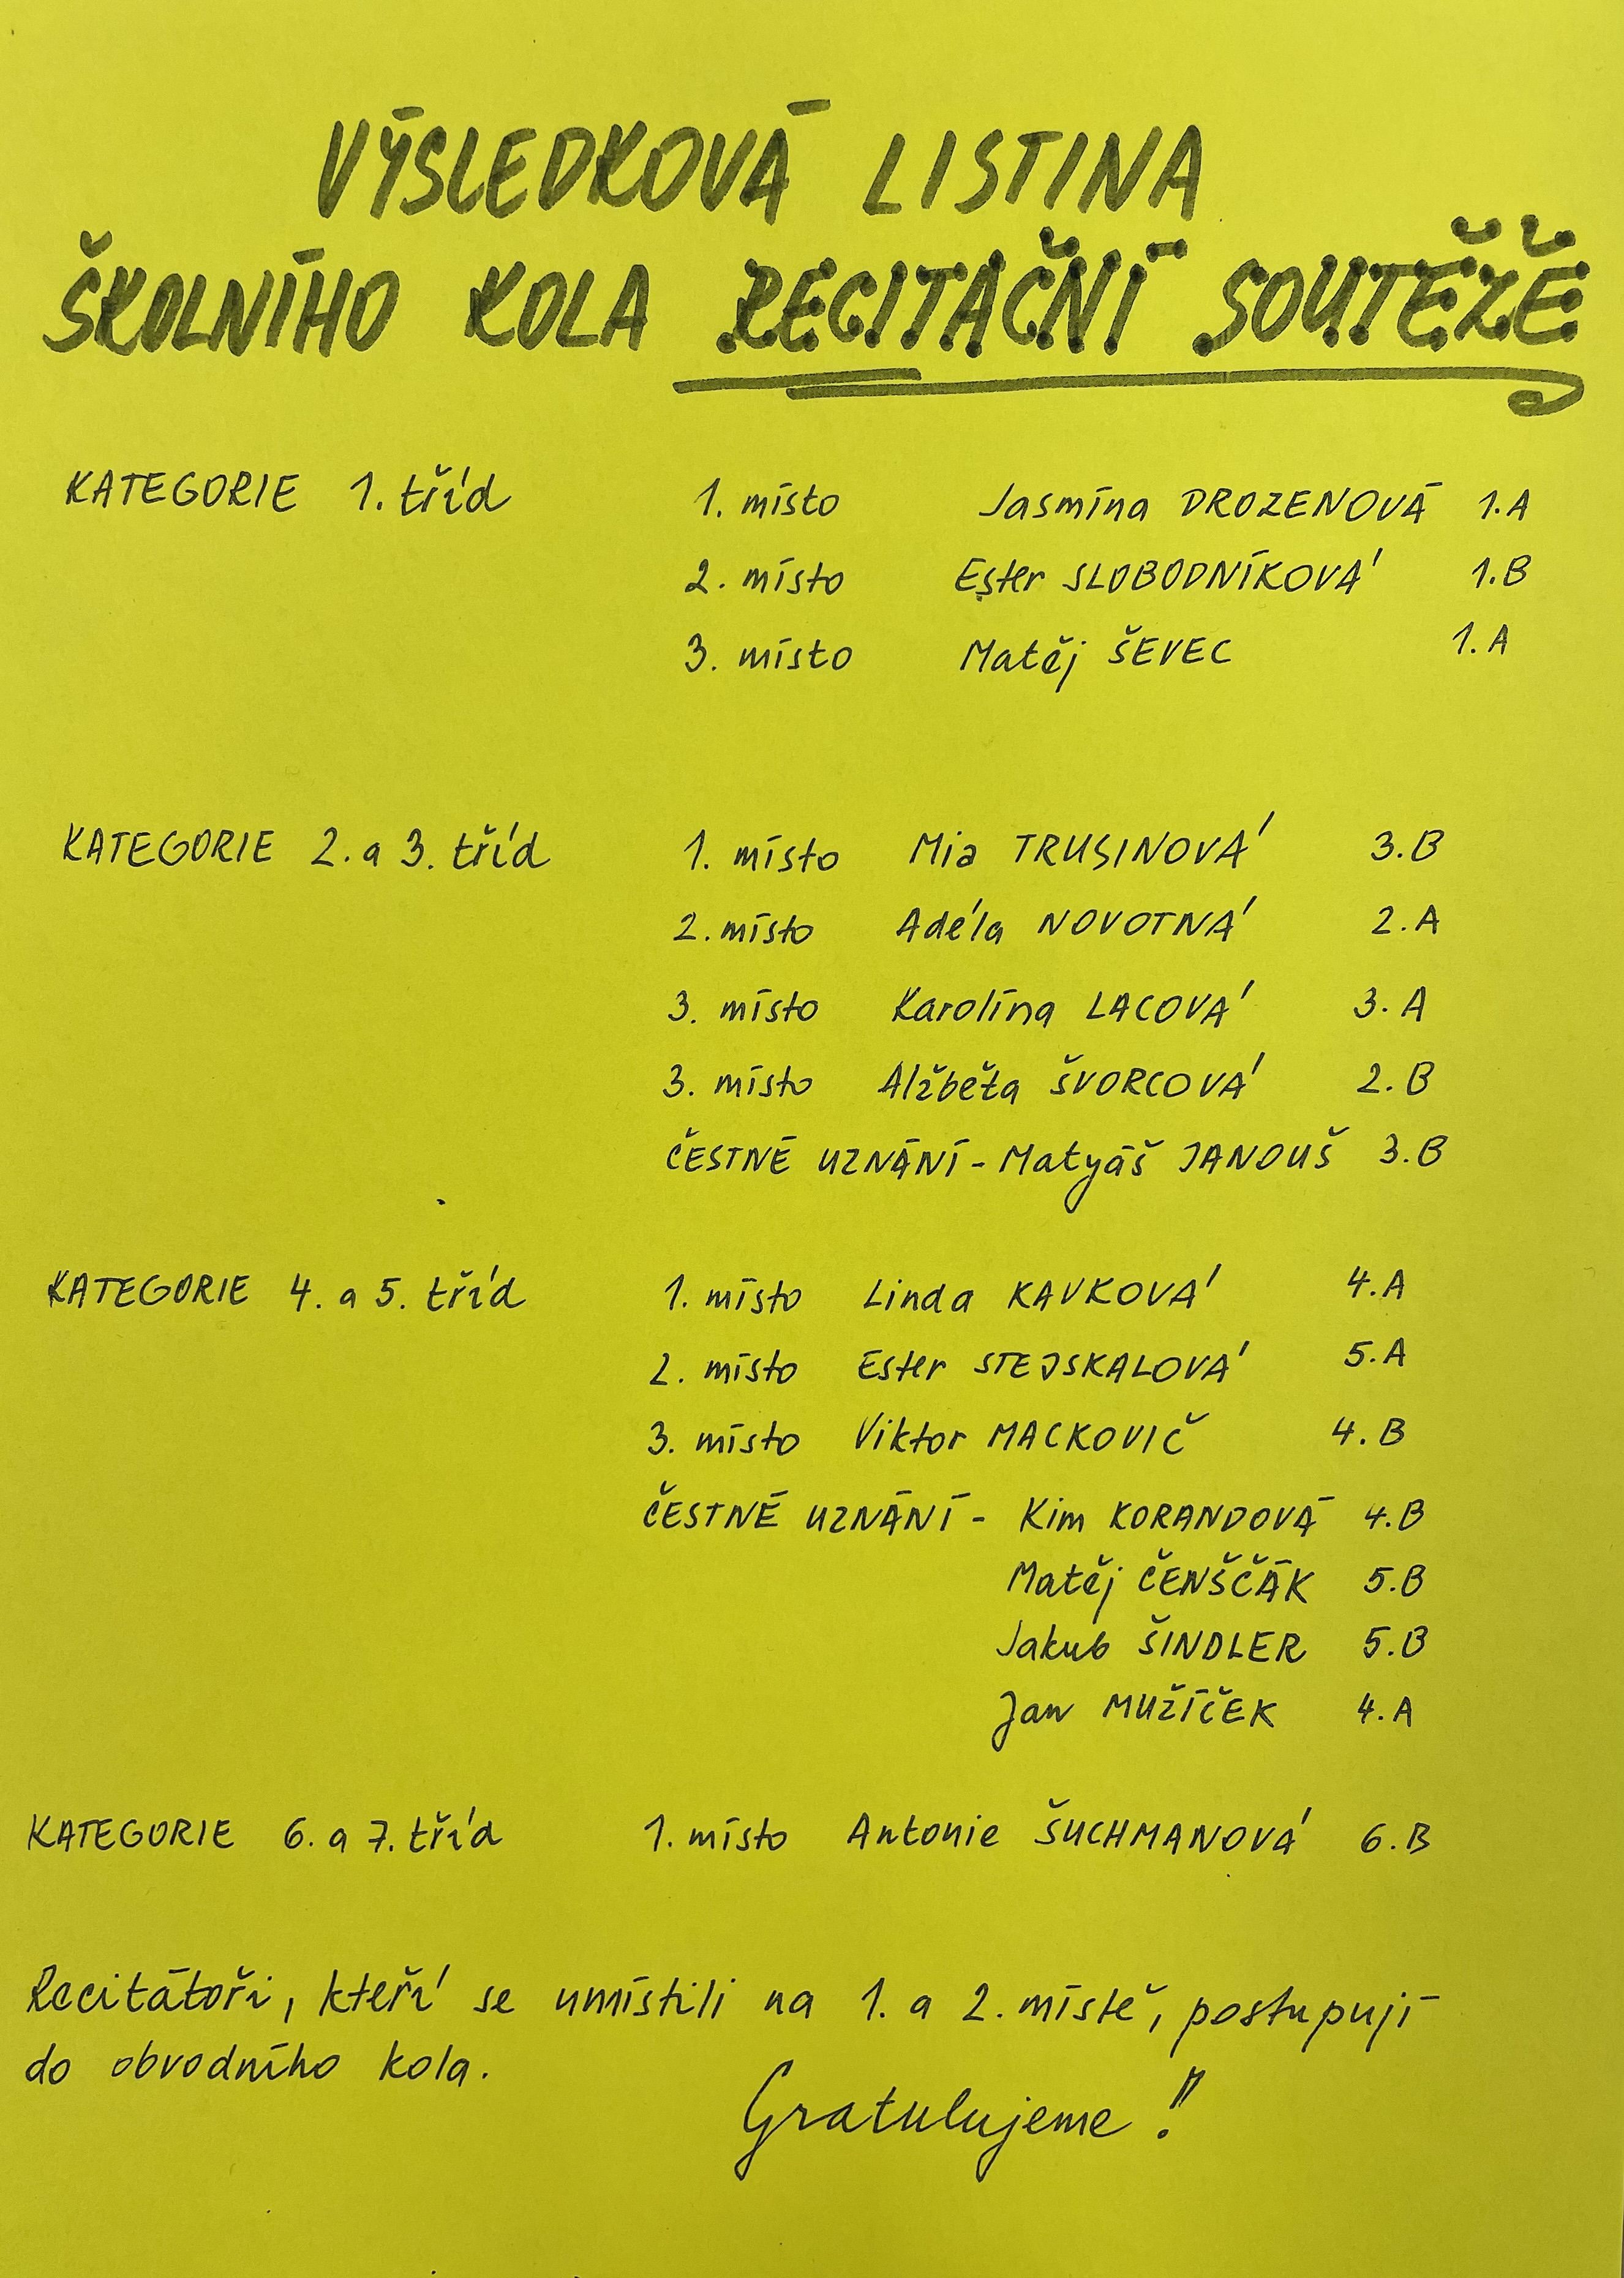 VÝSLEDKOVÁ LISTINA
ŠKOLNÍHO KOLA RECITAČNÍ SOUTĚŽE
KATEGORIE 1. tříd 1. místo Jasmína DROZENOVÁ 1.A
2. místo Ester SLOBODNÍKOVÁ 1.B
3. místo Matěj ŠEVEC 1.A
KATEGORIE 2. a 3. tříd 1. místo Mia TRUSINOVÁ 3.B
2. místo Adéla NOVOTNÁ 2.A
3. místo Karolína LACOVÁ 3.A
3. místo Alžběta ŠVORCOVÁ 2.B
ČESTNÉ UZNÁNÍ - Matyáš JANOUŠ 3.B
KATEGORIE 4. a 5. tříd 1. místo Linda KAVKOVÁ 4.A
2. místo Ester STEJSKALOVÁ 5.A
3. místo Viktor MACKOVIČ 4.B
ČESTNÉ UZNÁNÍ - Kim KORANDOVÁ 4.B
Matěj ČENŠČÁK 5.B
Jakub ŠINDLER 5.B
Jan MUŽÍČEK 4.A
KATEGORIE 6. a 7. tříd 1. místo Antonie ŠUCHMANOVÁ 6.B
Recitátoři, kteří se umístili na 1. a 2. místě, postupují
do obvodního kola.
Gratulujeme !!